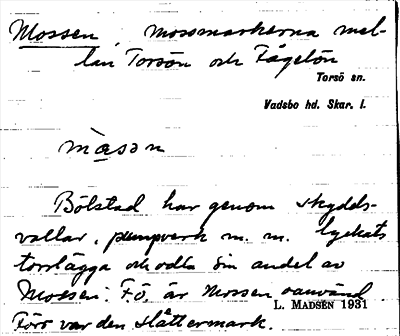 Mossen, mossmarkerna mel-
lan Torsön och Fågelön
Torsö sn.
Vadsbo hd. Skar. l.
mɑ̀sən
Bölstad har genom skydds-
vallar, pumpverk m. m. lyckats
torrlägga och odla sin andel av
Mossen. F.ö. är Mossen oanvänd
Förr var den slåttermark.
L. MADSEN 1931